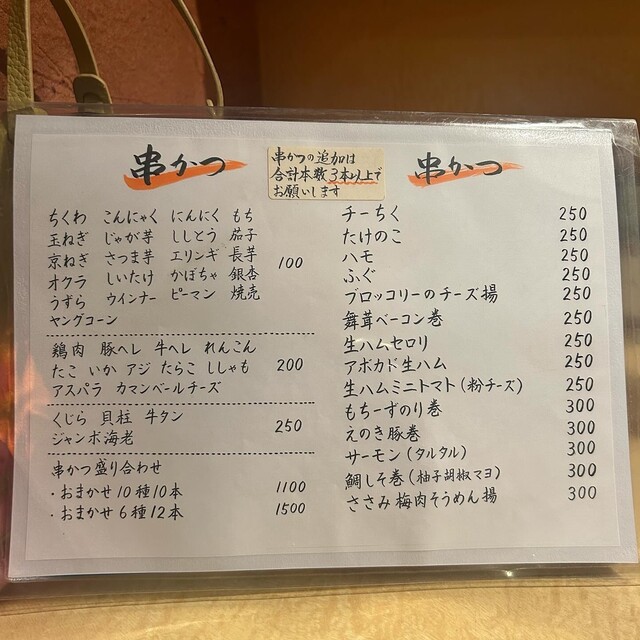 串かつ
串かつの追加は
合計本数3本以上で
お願いします
ちくわ こんにゃく にんにく もち
玉ねぎ じゃが芋 ししとう 茄子
京ねぎ さつま芋 エリンギ 長芋
オクラ しいたけ かぼちゃ 銀杏
うずら ウインナー ピーマン 焼売
ヤングコーン
100
鶏肉 豚ヘレ 牛ヘレ れんこん
たこ いか アジ たらこ ししゃも
アスパラ カマンベールチーズ
200
くじら 貝柱 牛タン
ジャンボ海老
250
串かつ盛り合わせ
・おまかせ10種10本 1100
・おまかせ6種12本 1500
串かつ
チーちく 250
たけのこ 250
ハモ 250
ふぐ 250
ブロッコリーのチーズ揚 250
舞茸ベーコン巻 250
生ハムセロリ 250
アボカド生ハム 250
生ハムミニトマト(粉チーズ) 250
もちーずのり巻 300
えのき豚巻 300
サーモン(タルタル) 300
鯛しそ巻(柚子胡椒マヨ) 300
ささみ梅肉そうめん揚 300